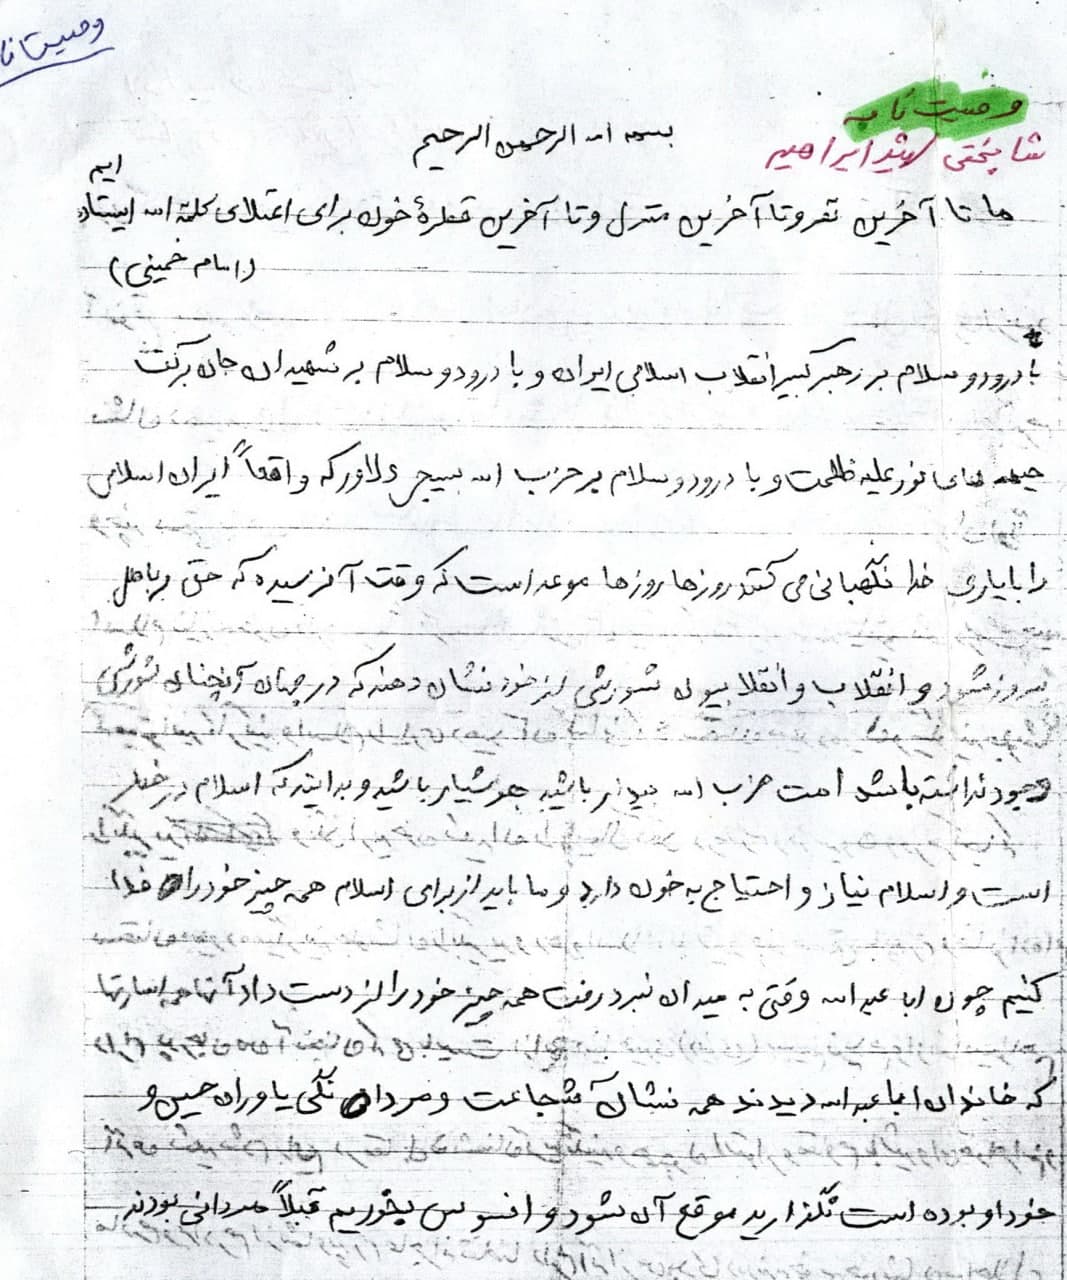 وصیتنا
وصیت نامه
شابختی شهید ابراهیم
بسمه اله الرحمن الرحیم
ما تا آخرین نفر و تا آخرین منزل و تا آخرین قطرهٔ خون برای اعتلای کلمة اله ایستاده
ایم
(امام خمینی)
با درود و سلام بر رهبر کبیر انقلاب اسلامی ایران و با درود و سلام بر شهیدان جان برکف
جبهه های نور علیه ظلمت و با درود و سلام بر حزب اله بسیجی دلاور که واقعاً ایران اسلامی
را با یاری خدا نگهبانی می کنند روزها روزها موعد است که وقت آن رسیده که حق بر باطل
پیروز شود و انقلاب و انقلابیون شورشی از خود نشان دهند که در جهان آنچنان شورشی
وجود نداشته باشد امت حزب اله بیدار باشید هوشیار باشید و بدانید که اسلام در خطر
است و اسلام نیاز و احتیاج به خون دارد و ما باید از برای اسلام همه چیز خود را فدا
کنیم چون ابا عبداله وقتی به میدان نبرد رفت همه چیز خود را از دست داد آنها همه اسارتها
که خاندان ابا عبداله دیدند همه نشان شجاعت و مردانگی یاوران حسین و
خود او بوده است نگذارید موقع آن شود و افسوس بخوریم قبلاً مردانی بودند